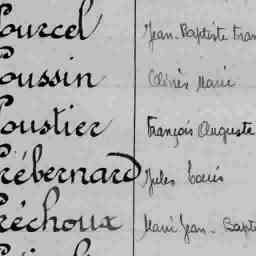 ourcel Jean-Baptiste Fran
oussin Marie
oustier François Auguste
rébernard Jules Louis
réchoux Marie Jean-Bapt